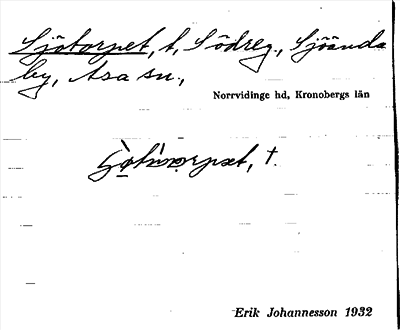 Sjötorpet, t, Södreg., Sjöända
by, Asa sn.,
Norrvidinge hd, Kronobergs län
t.
Erik Johannesson 1932